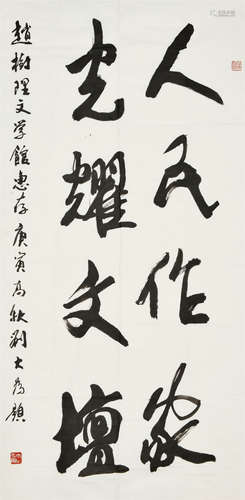 人民作家
光耀文壇
趙樹理文学館惠存庚寅高秋劉大為題